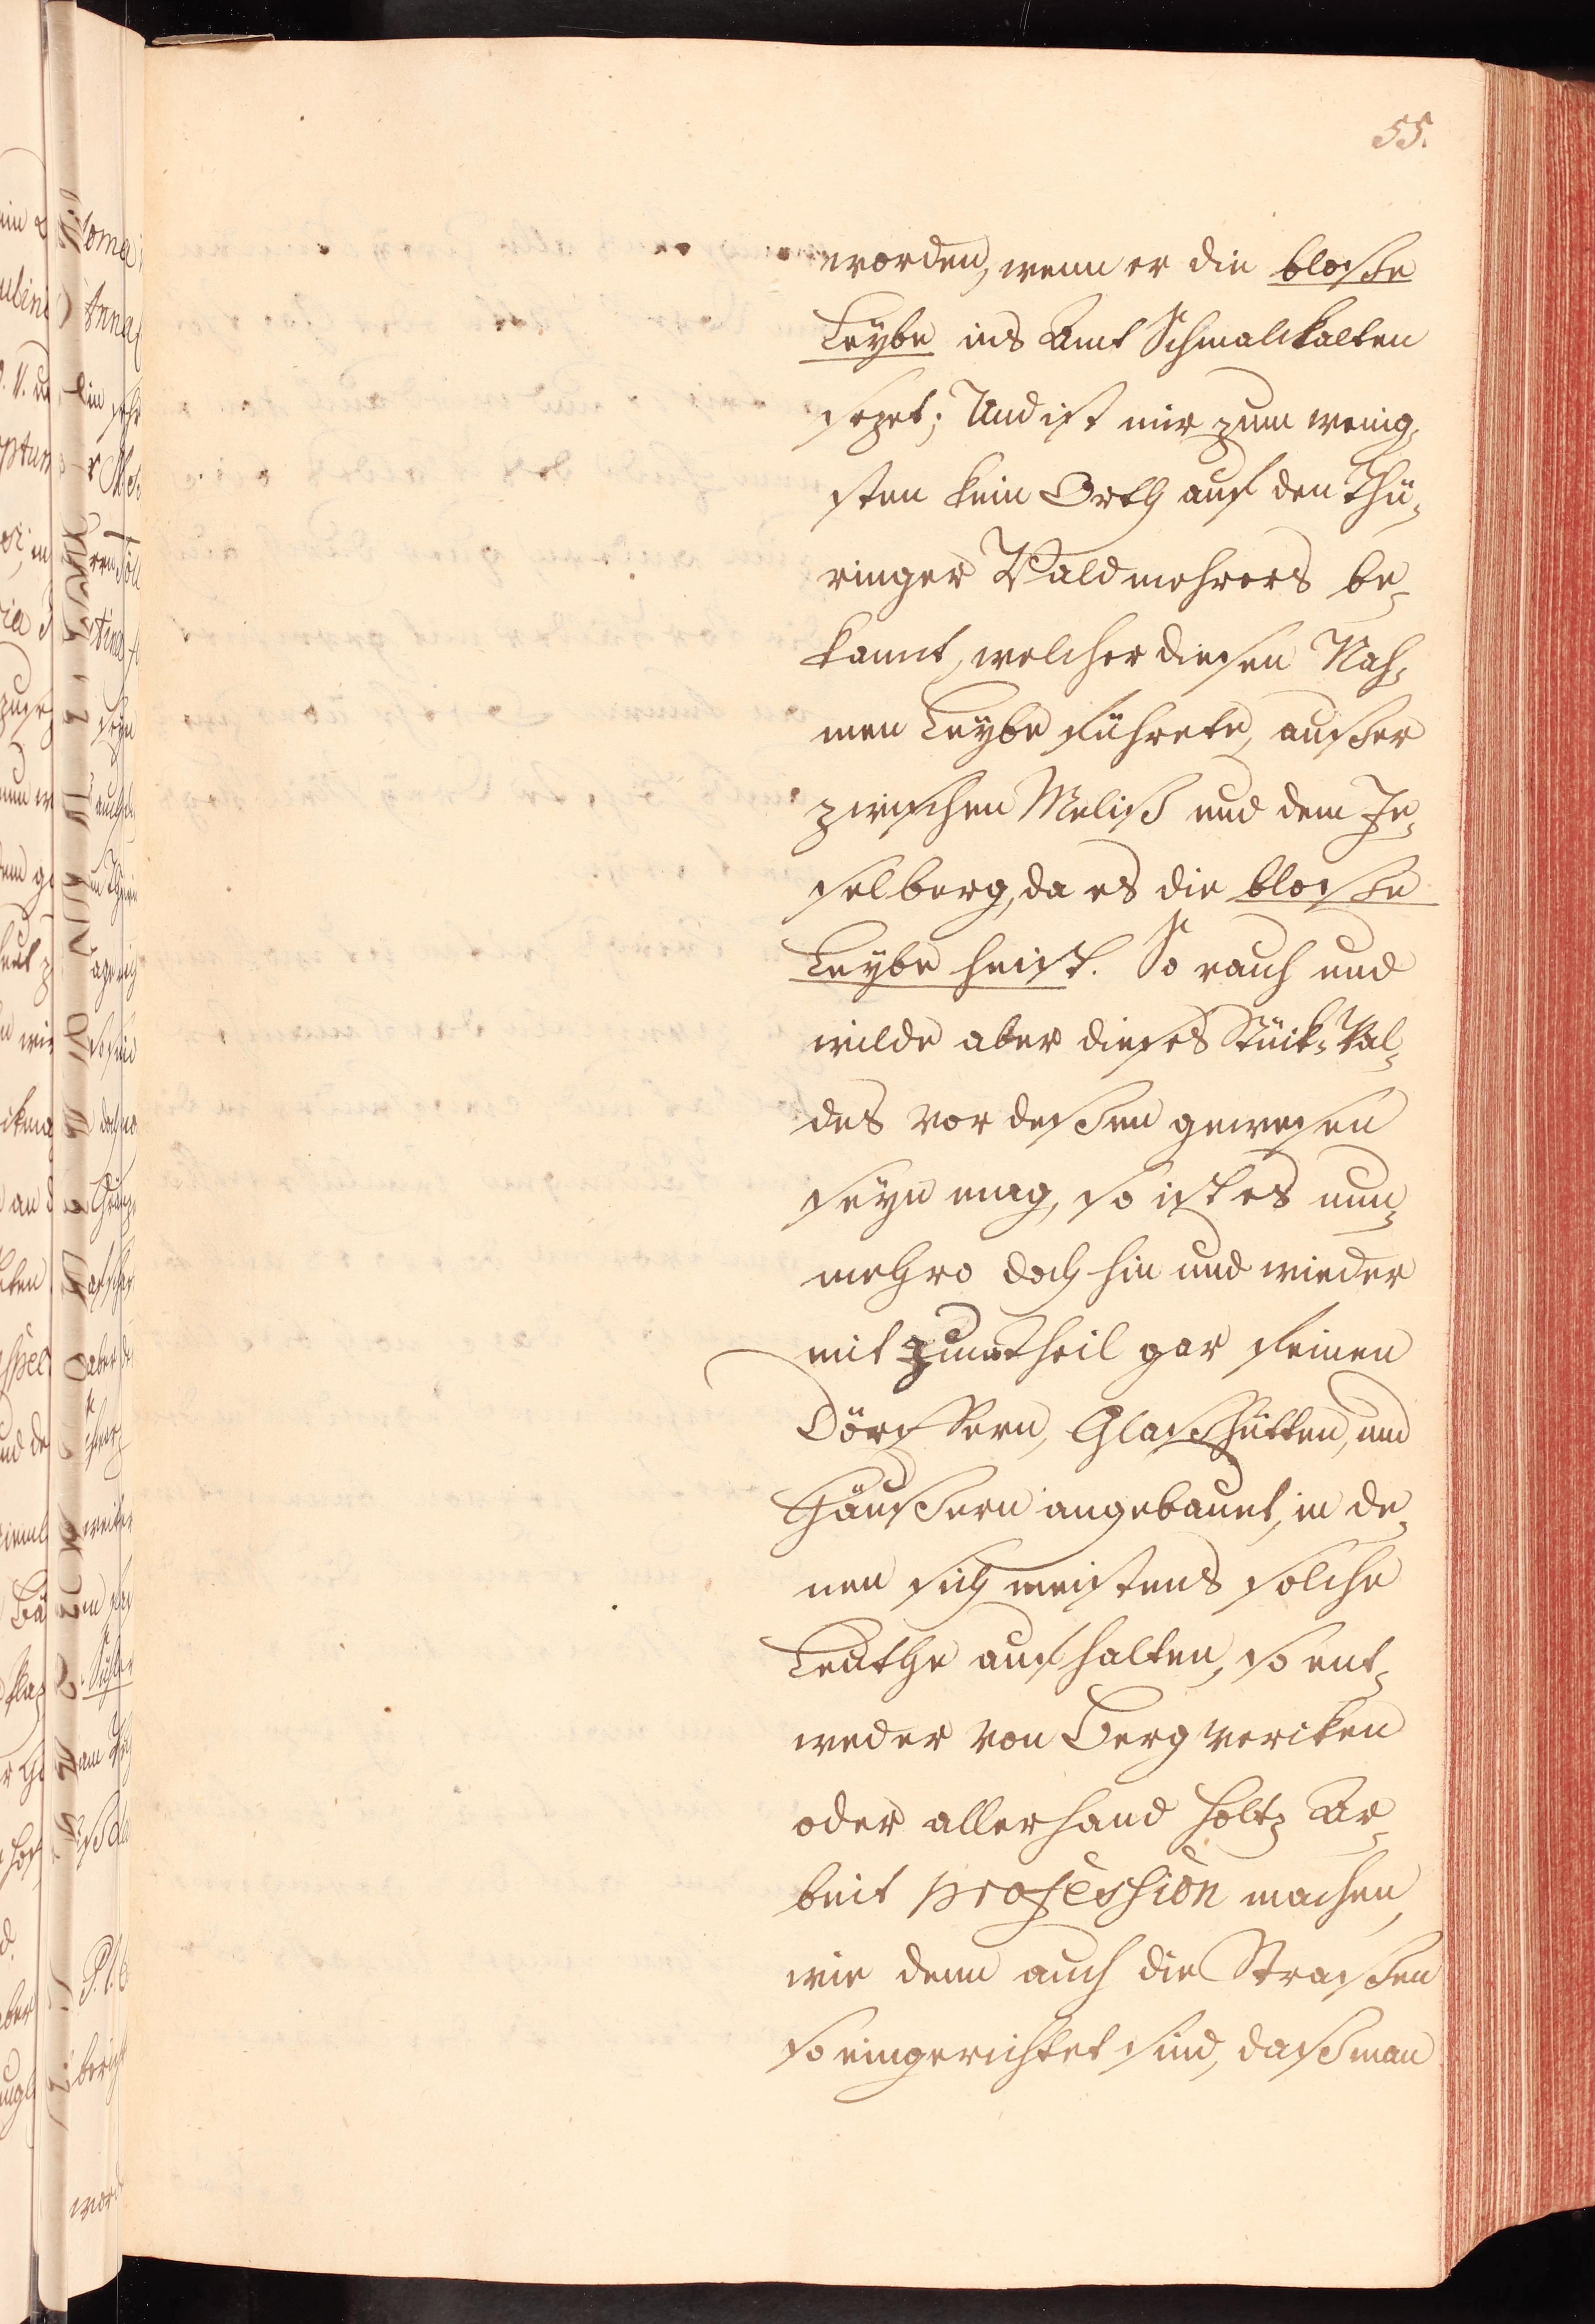 55.
worden, wenn er die bloße
Leÿbe ins Amt Schmalckalten
sezet; Und ist mir zum wenig¬
sten kein Orth auf den Thü¬
ringer Wald mehrers be¬
kannt, welcher diesen Nah¬
men Leÿbe führete, außer
zwischen Meliß und dem In¬
selberg, da es die bloße
Leÿbe heist. So rauh und
wilde aber dieses Stück-Wal¬
des vor deßen gewesen
seÿn mag, so ist es nun¬
mehro doch hin und wieder
mit zum theil gar feinen
Dörffern, Glaßhütten, und
Häußern angebauet, in de¬
nen sich meistens solche
Leuthe aufhalten, so ent¬
weder von Bergwercken
oder allerhand Holtz Ar¬
beit profession machen,
wie denn auch die Straßen
so eingerichtet sind, daß man